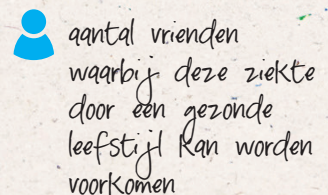 aantal vrienden
waarbij deze ziekte
door een gezonde
leefstijl kan worden
voorkomen